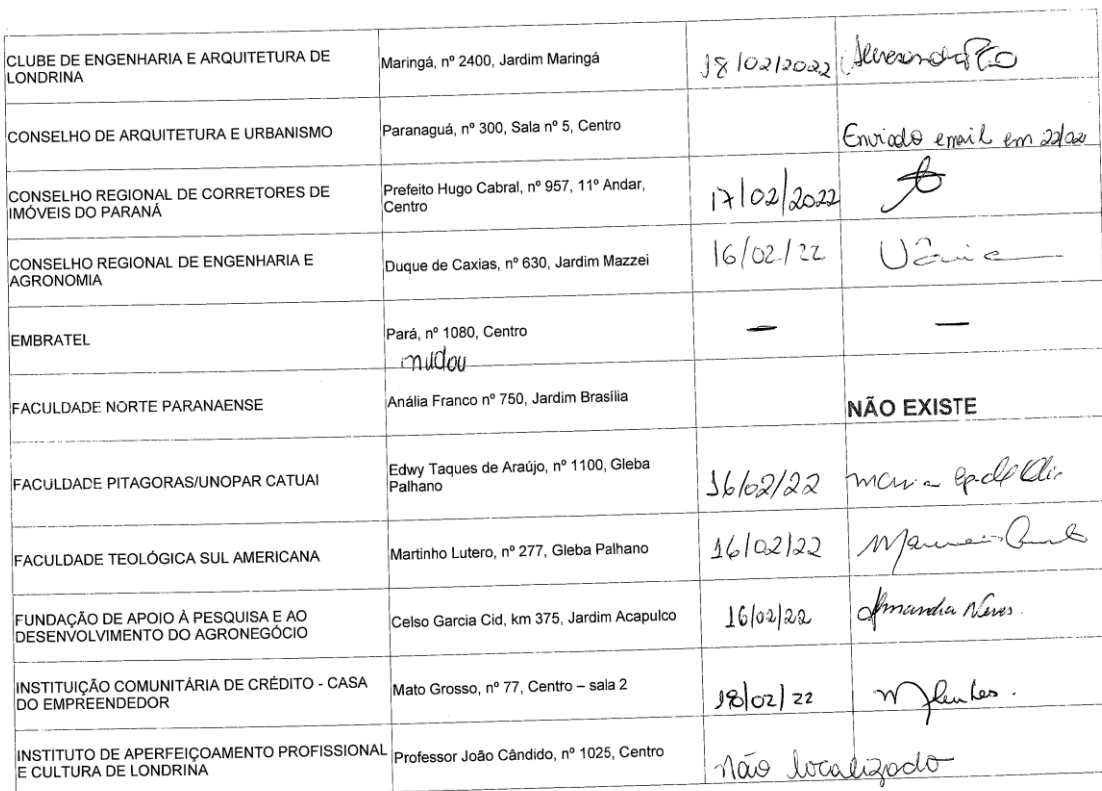 CLUBE DE ENGENHARIA E ARQUITETURA DE
LONDRINA
Maringá, nº 2400, Jardim Maringá
18/02/2022
CONSELHO DE ARQUITETURA E URBANISMO
Paranaguá, nº 300, Sala nº 5, Centro
Enviado email em 22/02
CONSELHO REGIONAL DE CORRETORES DE
IMÓVEIS DO PARANÁ
Prefeito Hugo Cabral, nº 957, 11º Andar,
Centro
17/02/2022
CONSELHO REGIONAL DE ENGENHARIA E
AGRONOMIA
Duque de Caxias, nº 630, Jardim Mazzei
16/02/22
Vânia
EMBRATEL
Pará, nº 1080, Centro
mudou
—
—
FACULDADE NORTE PARANAENSE
Anália Franco nº 750, Jardim Brasília
NÃO EXISTE
FACULDADE PITAGORAS/UNOPAR CATUAI
Edwy Taques de Araújo, nº 1100, Gleba
Palhano
16/02/22
FACULDADE TEOLÓGICA SUL AMERICANA
Martinho Lutero, nº 277, Gleba Palhano
16/02/22
FUNDAÇÃO DE APOIO À PESQUISA E AO
DESENVOLVIMENTO DO AGRONEGÓCIO
Celso Garcia Cid, km 375, Jardim Acapulco
16/02/22
Amanda Neves.
INSTITUIÇÃO COMUNITÁRIA DE CRÉDITO - CASA
DO EMPREENDEDOR
Mato Grosso, nº 77, Centro – sala 2
18/02/22
INSTITUTO DE APERFEIÇOAMENTO PROFISSIONAL
E CULTURA DE LONDRINA
Professor João Cândido, nº 1025, Centro
não localizado